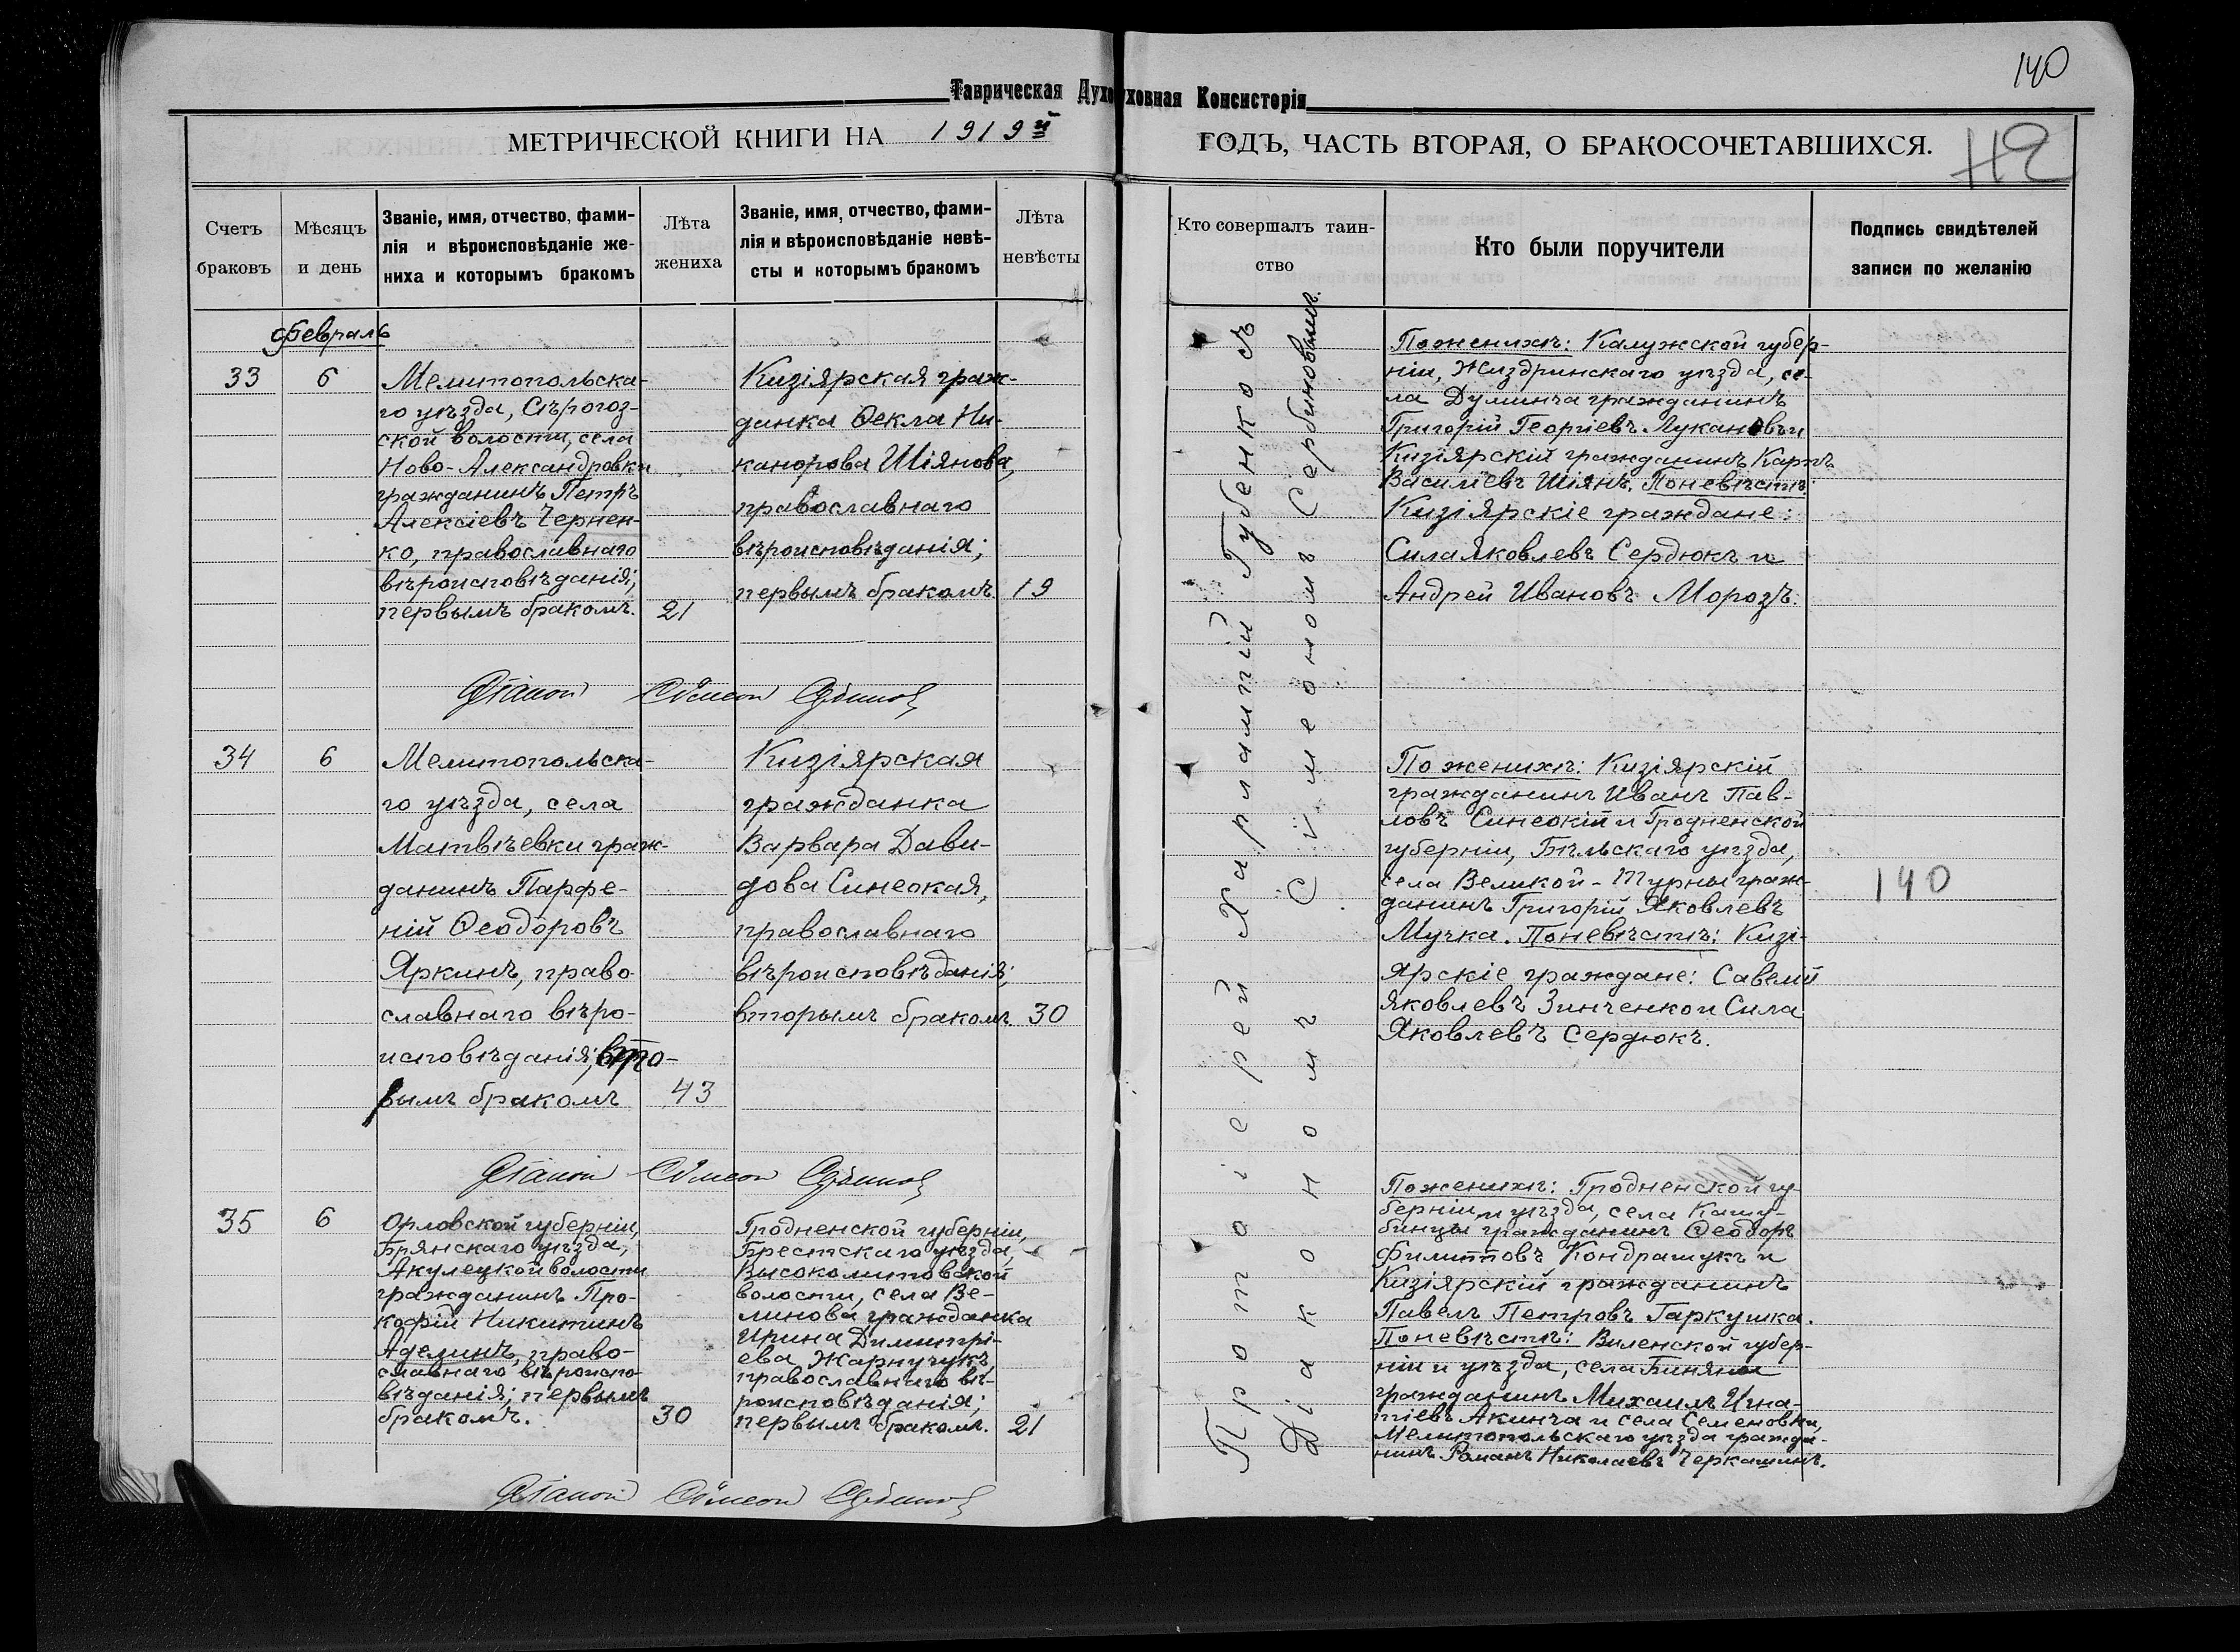 140
Таврическая Духовная Консисторія
МЕТРИЧЕСКОЙ КНИГИ НА 1919й ГОДЪ, ЧАСТЬ ВТОРАЯ, О БРАКОСОЧЕТАВШИХСЯ.
Счетъ
браковъ
Мѣсяцъ
и день
Званіе, имя, отчество, фами-
лія и вѣроисповѣданіе же-
ниха и которымъ бракомъ
Лѣта
жениха
Званіе, имя, отчество, фами-
лія и вѣроисповѣданіе невѣ-
сты и которымъ бракомъ
Лѣта
невѣсты
Кто совершалъ таин-
ство
Кто были поручители
Подпись свидѣтелей
записи по желанію
Февраль
33
6
Мелитопольска-
го уѣзда, Сѣрогоз-
ской волости, села
Ново-Александровки
гражданинъ Петръ
Алексіевъ Чернен-
ко, православнаго
вѣроисповѣданія;
первымъ бракомъ.
21
Кизіярская граж-
данка Ѳекла Ни-
канорова Шіянова,
православнаго
вѣроисповѣданія;
первымъ бракомъ.
19
Протоіерей Харлампій Губенко съ
Діакономъ Сімеономъ Сербиновымъ.
По женихѣ: Калужской губер-
ніи, Жиздринскаго уѣзда, се-
ла Думинча гражданинъ
Григорій Георгіевъ Лукановъ и
Кизіярскій гражданинъ Карпъ
Василіевъ Шіянъ. По невѣстѣ:
Кизіярскіе граждане:
Сила Яковлевъ Сердюкъ и
Андрей Ивановъ Морозъ.
Діаконъ Сѵмеонъ
34
6
Мелитопольска-
го уѣзда, села
Матвѣевки граж-
данинъ Парфе-
ній Ѳеодоровъ
Яркинъ, право-
славнаго вѣро-
исповѣданія; вто-
рымъ бракомъ
43
Кизіярская
гражданка
Варвара Дави-
дова Синеокая,
православнаго
вѣроисповѣданія;
вторымъ бракомъ.
30
По женихѣ: Кизіярскій
гражданинъ Иванъ Пав-
ловъ Синеокій и Гродненской
губерніи, Бѣльскаго уѣзда,
села Великой-Турны граж-
данинъ Григорій Яковлевъ
Мучка. По невѣстѣ: Кизі-
ярскіе граждане: Савелій
Яковлевъ Зинченко и Сила
Яковлевъ Сердюкъ.
140
Діаконъ Сѵмеонъ
35
6
Орловской губерніи,
Брянскаго уѣзда,
Акулецкой волости
гражданинъ Про-
кофій Никитинъ
Аделинъ, право-
славнаго вѣроиспо-
вѣданія; первымъ
бракомъ.
30
Гродненской губерніи,
Брестскаго уѣзда,
Высоколитовской
волости, села Ве-
линова гражданка
Ирина Димитрі-
ева Жарнучукъ,
православнаго вѣ-
роисповѣданія;
первымъ бракомъ.
21
По женихѣ: Гродненской гу-
берніи и уѣзда, села Кашу-
бинцы гражданинъ Ѳеодоръ
Филипповъ Кондрашукъ и
Кизіярскій гражданинъ
Павелъ Петровъ Гаркушка.
По невѣстѣ: Виленской губер-
ніи и уѣзда, села
гражданинъ Михаилъ Игна-
тіевъ Акинча и села Семеновки,
Мелитопольскаго уѣзда гражда-
нинъ Романъ Николаевъ Черкашинъ.
Діаконъ Сѵмеонъ